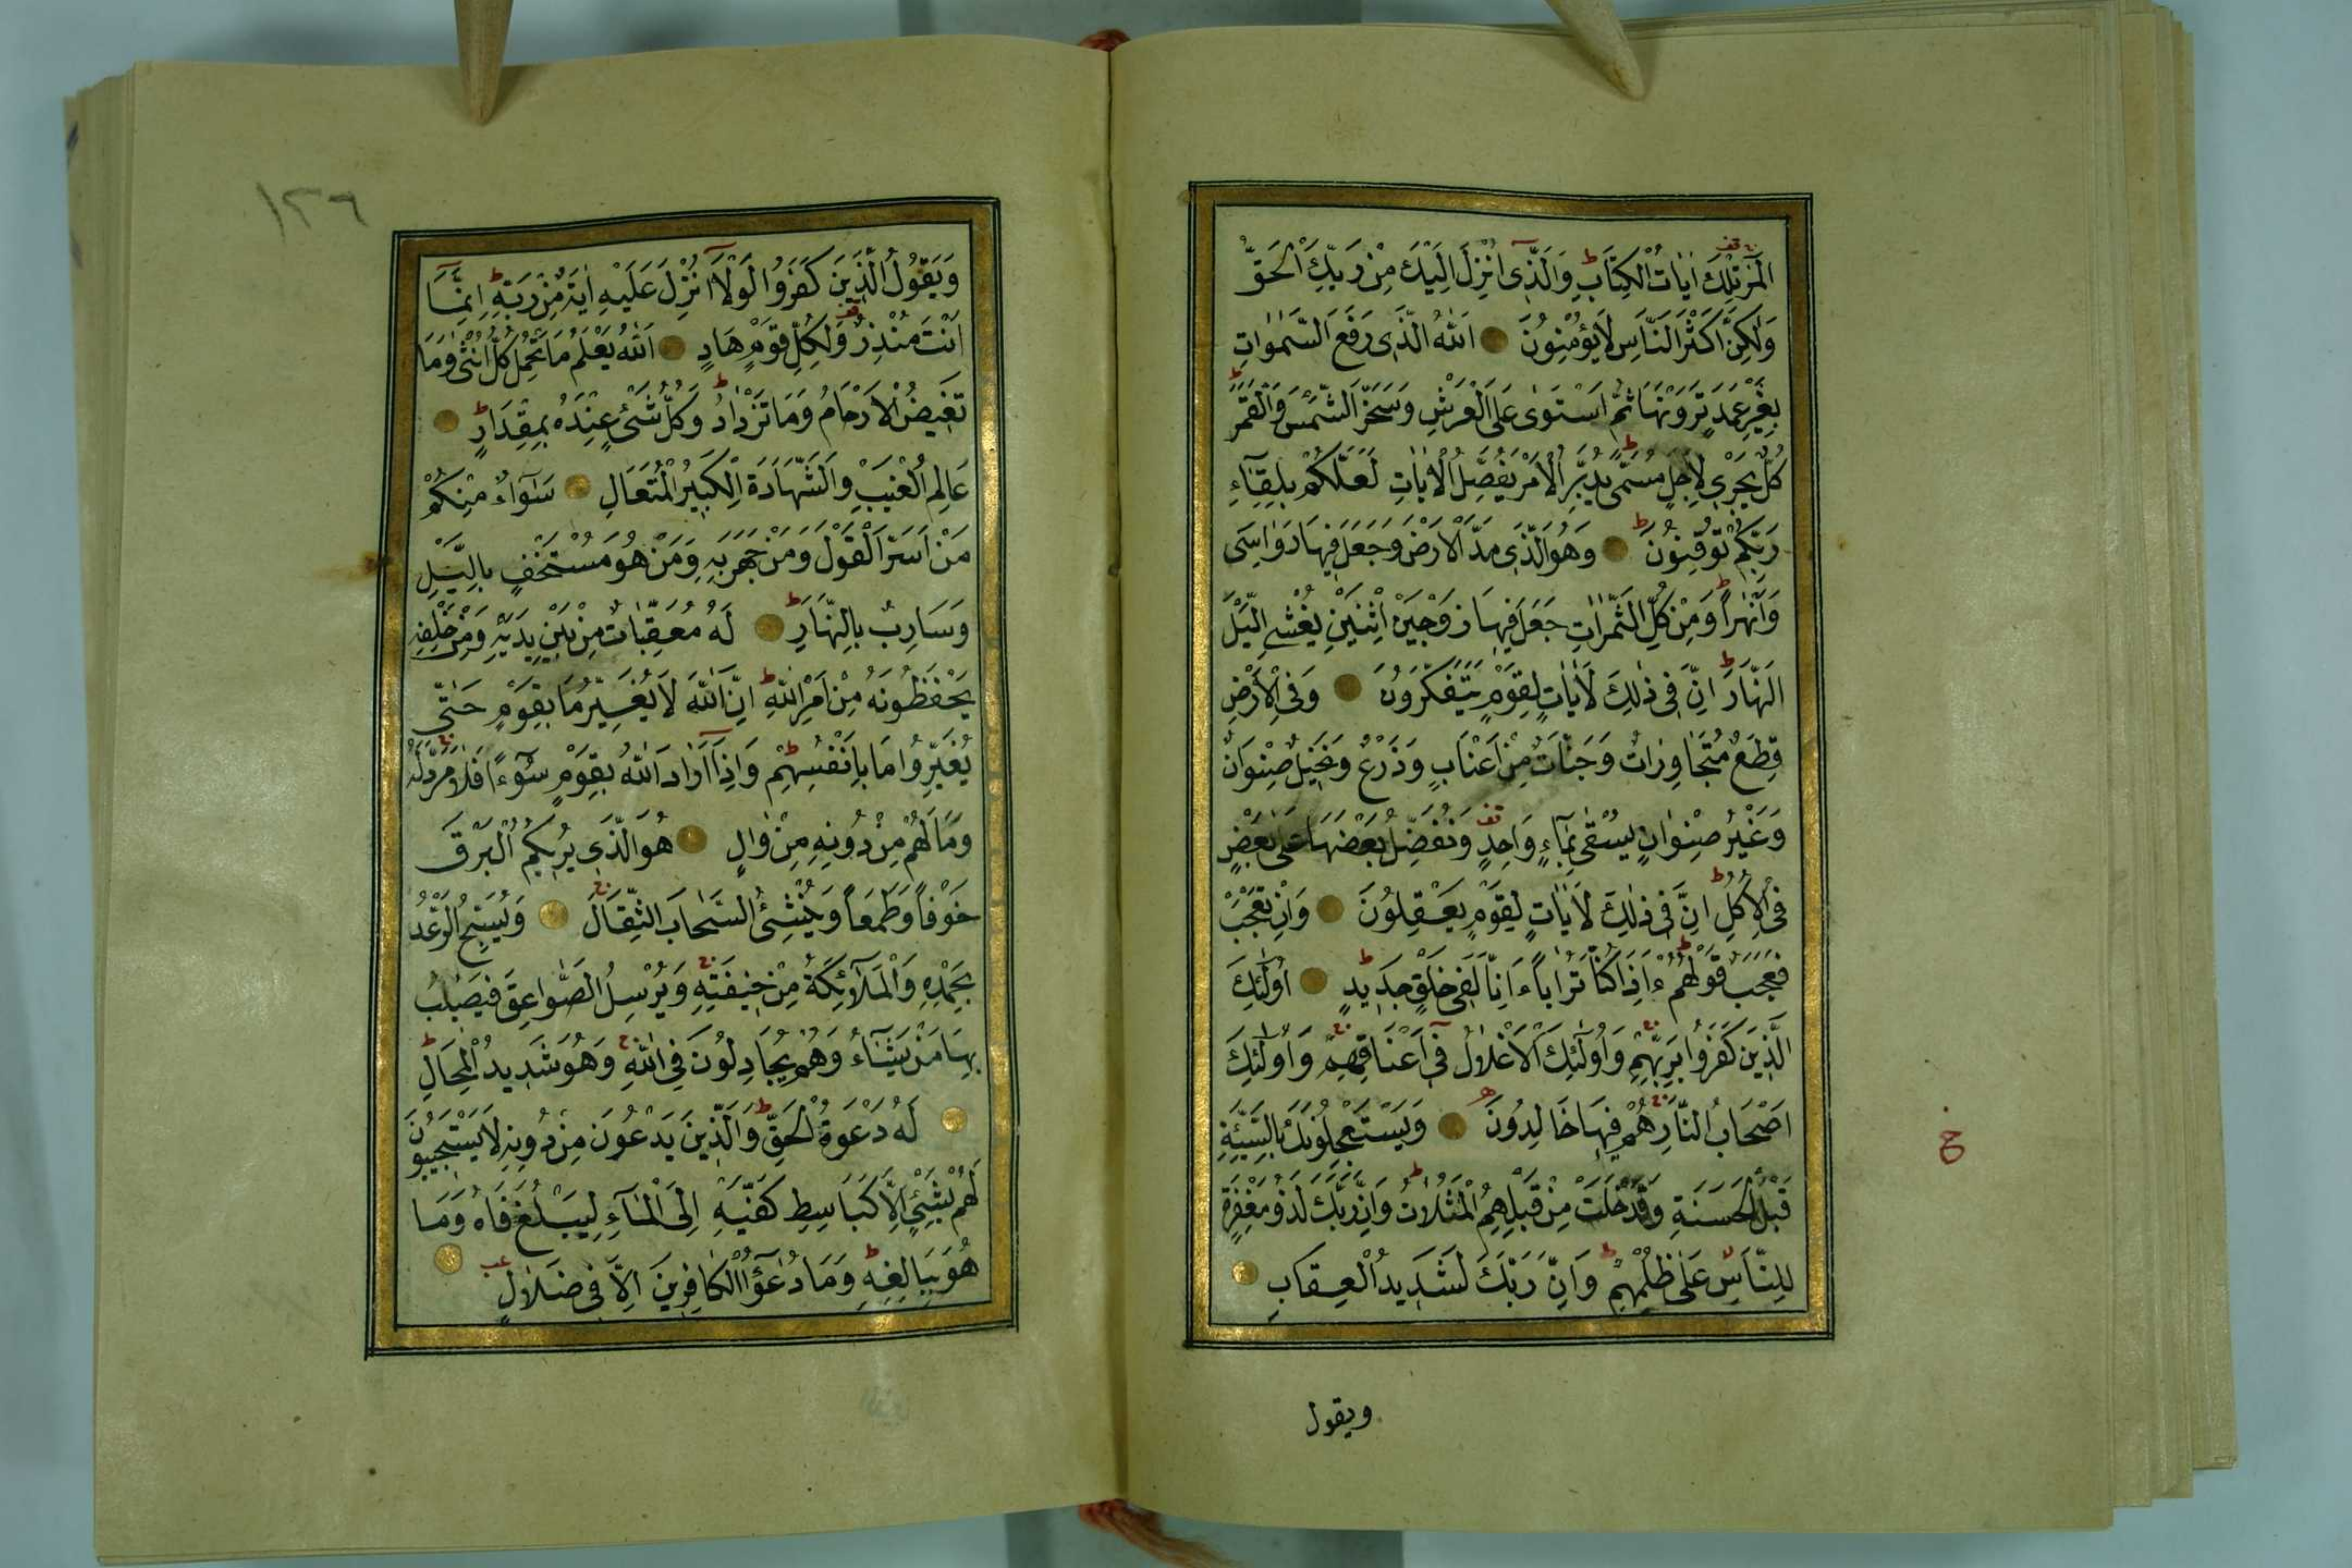 الٓمٓرٰ تِلْكَ اٰيَاتُ الْكِتَابِ وَالَّذِى اُنْزِلَ اِلَيْكَ مِنْ رَبِّكَ الْحَقُّ
وَلٰكِنَّ اَكْثَرَ النَّاسِ لَا يُؤْمِنُونَ اَللّٰهُ الَّذِى رَفَعَ السَّمٰوَاتِ
بِغَيْرِ عَمَدٍ تَرَوْنَهَا ثُمَّ اسْتَوٰى عَلَى الْعَرْشِ وَسَخَّرَ الشَّمْسَ وَالْقَمَرَ
كُلٌّ يَجْرِى لِاَجَلٍ مُسَمًّى يُدَبِّرُ الْاَمْرَ يُفَصِّلُ الْاٰيَاتِ لَعَلَّكُمْ بِلِقَآءِ
رَبِّكُمْ تُوقِنُونَ وَهُوَ الَّذِى مَدَّ الْاَرْضَ وَجَعَلَ فِيهَا رَوَاسِىَ
وَاَنْهٰرًا وَمِنْ كُلِّ الثَّمَرَاتِ جَعَلَ فِيهَا زَوْجَيْنِ اثْنَيْنِ يُغْشِى الَّيْلَ
النَّهَارَ اِنَّ فِى ذٰلِكَ لَاٰيَاتٍ لِقَوْمٍ يَتَفَكَّرُونَ وَفِى الْاَرْضِ
قِطَعٌ مُتَجَاوِرَاتٌ وَجَنَّاتٌ مِنْ اَعْنَابٍ وَزَرْعٌ وَنَخِيلٌ صِنْوَانٌ
وَغَيْرُ صِنْوَانٍ يُسْقٰى بِمَآءٍ وَاحِدٍ وَنُفَضِّلُ بَعْضَهَا عَلٰى بَعْضٍ
فِى الْاُكُلِ اِنَّ فِى ذٰلِكَ لَاٰيَاتٍ لِقَوْمٍ يَعْقِلُونَ وَاِنْ تَعْجَبْ
فَعَجَبٌ قَوْلُهُمْ ءَاِذَا كُنَّا تُرَابًا ءَاِنَّا لَفِى خَلْقٍ جَدِيدٍ اُولٰٓئِكَ
الَّذِينَ كَفَرُوا بِرَبِّهِمْ وَاُولٰٓئِكَ الْاَغْلَالُ فِى اَعْنَاقِهِمْ وَاُولٰٓئِكَ
اَصْحَابُ النَّارِ هُمْ فِيهَا خَالِدُونَ وَيَسْتَعْجِلُونَكَ بِالسَّيِّئَةِ
قَبْلَ الْحَسَنَةِ وَقَدْ خَلَتْ مِنْ قَبْلِهِمُ الْمَثُلَاتُ وَاِنَّ رَبَّكَ لَذُو مَغْفِرَةٍ
لِلنَّاسِ عَلٰى ظُلْمِهِمْ وَاِنَّ رَبَّكَ لَشَدِيدُ الْعِقَابِ
ويقول
١٢٦
وَيَقُولُ الَّذِينَ كَفَرُوا لَوْلَآ اُنْزِلَ عَلَيْهِ اٰيَةٌ مِنْ رَبِّهِ اِنَّمَآ
اَنْتَ مُنْذِرٌ وَلِكُلِّ قَوْمٍ هَادٍ اَللّٰهُ يَعْلَمُ مَا تَحْمِلُ كُلُّ اُنْثٰى وَمَا
تَغِيضُ الْاَرْحَامُ وَمَا تَزْدَادُ وَكُلُّ شَىْءٍ عِنْدَهُ بِمِقْدَارٍ
عَالِمُ الْغَيْبِ وَالشَّهَادَةِ الْكَبِيرُ الْمُتَعَالِ سَوَآءٌ مِنْكُمْ
مَنْ اَسَرَّ الْقَوْلَ وَمَنْ جَهَرَ بِهِ وَمَنْ هُوَ مُسْتَخْفٍ بِالَّيْلِ
وَسَارِبٌ بِالنَّهَارِ لَهُ مُعَقِّبَاتٌ مِنْ بَيْنِ يَدَيْهِ وَمِنْ خَلْفِهِ
يَحْفَظُونَهُ مِنْ اَمْرِ اللّٰهِ اِنَّ اللّٰهَ لَا يُغَيِّرُ مَا بِقَوْمٍ حَتّٰى
يُغَيِّرُوا مَا بِاَنْفُسِهِمْ وَاِذَآ اَرَادَ اللّٰهُ بِقَوْمٍ سُوٓءًا فَلَا مَرَدَّ لَهُ
وَمَا لَهُمْ مِنْ دُونِهِ مِنْ وَالٍ هُوَ الَّذِى يُرِيكُمُ الْبَرْقَ
خَوْفًا وَطَمَعًا وَيُنْشِئُ السَّحَابَ الثِّقَالَ وَيُسَبِّحُ الرَّعْدُ
بِحَمْدِهِ وَالْمَلٰٓئِكَةُ مِنْ خِيفَتِهِ وَيُرْسِلُ الصَّوَاعِقَ فَيُصِيبُ
بِهَا مَنْ يَشَآءُ وَهُمْ يُجَادِلُونَ فِى اللّٰهِ وَهُوَ شَدِيدُ الْمِحَالِ
لَهُ دَعْوَةُ الْحَقِّ وَالَّذِينَ يَدْعُونَ مِنْ دُونِهِ لَا يَسْتَجِيبُونَ
لَهُمْ بِشَىْءٍ اِلَّا كَبَاسِطِ كَفَّيْهِ اِلَى الْمَآءِ لِيَبْلُغَ فَاهُ وَمَا
هُوَ بِبَالِغِهِ وَمَا دُعَٓؤُا الْكَافِرِينَ اِلَّا فِى ضَلَالٍ